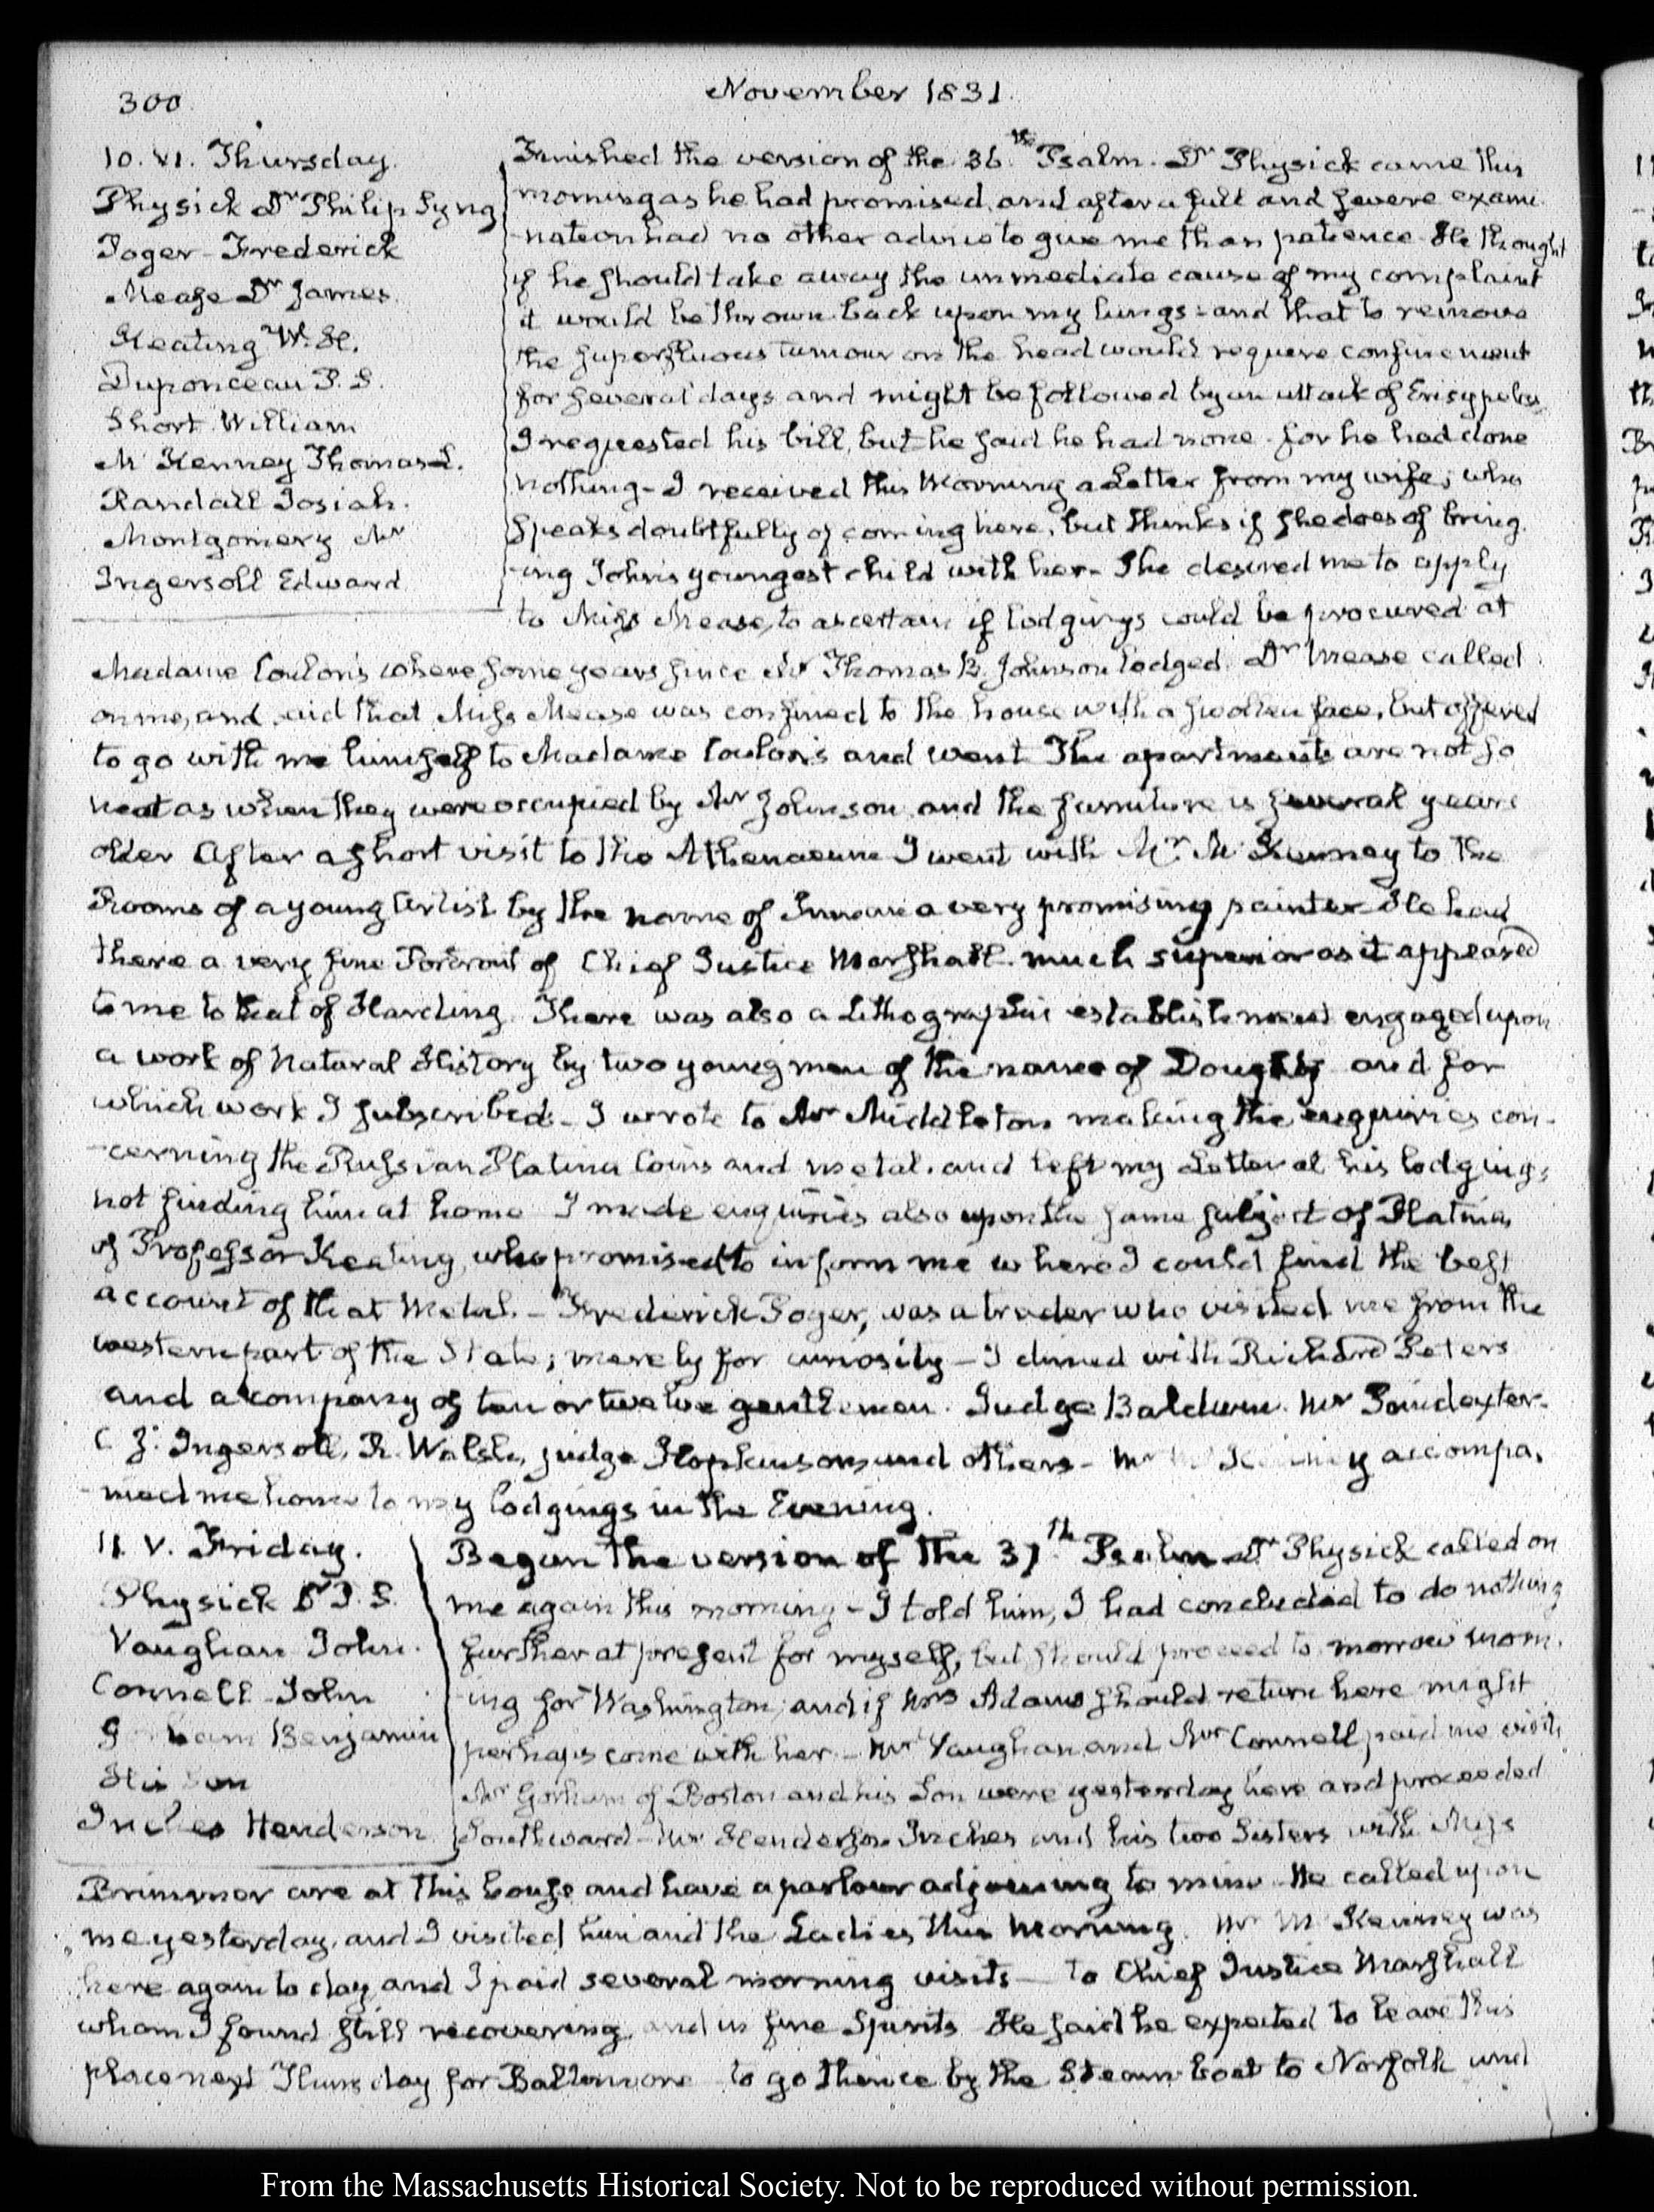 300
November 1831.
10. VI. Thursday.
Physick Dr Philip Syng
Foger - Frederick
Mease Dr James
Keating W. H.
Duponceau P. S.
Short William
Mc Kenney Thomas L.
Randall Josiah.
Montgomery Mr
Ingersoll Edward
Finished the version of the 36.th Psalm. Dr Physick came this
morning as he had promised, and after a full and severe exami-
-nation had no other advice to give me than patience. He thought
if he should take away the immediate cause of my complaint
it would be thrown back upon my lungs: and that to remove
the superfluous tumour on the head would require confinement
for several days and might be followed by an attack of Erisypelas
I requested his bill, but he said he had none. for he had done
nothing - I received this Morning a Letter from my wife; who
speaks doubtfully of coming here, but thinks if she does of bring-
-ing John's youngest child with her. She desired me to apply
to Miss Mease, to ascertain if lodgings could be procured at
Madame Coulon's where some years since Mr Thomas B. Johnson lodged. Dr Mease called
on me, and said that Miss Mease was confined to the house with a swollen face, but offered
to go with me himself to Madame Coulon's and went. The apartments are not so
neat as when they were occupied by Mr Johnson and the furniture is several years
older After a short visit to the Athenaeum I went with Mr. Mc Kenney to the
Rooms of a young Artist by the name of Inman a very promising painter He had
there a very fine Portrait of Chief Justice Marshall. much superior as it appeared
to me to that of Harding. There was also a Lithographic establishment engaged upon
a work of Natural History by two young men of the name of Doughty and for
which work I subscribed - I wrote to Mr Middleton making the enquiries con-
-cerning the Russian Platina Coins and metal. and left my Letter at his lodgings
not finding him at home I made enquiries also upon the same subject of Platina
of Professor Keating, who promised to inform me where I could find the best
account of that Metal. - Frederick Foger, was a trader who visited me from the
western part of the State; merely for curiosity - I dined with Richard Peters
and a company of ten or twelve gentlemen. Judge Baldwin. Mr Poindexter.
C. J. Ingersoll, R. Walsh, judge Hopkinson and others - Mr Mc Kenney accompa-
-nied me home to my lodgings in the Evening.
11. V. Friday.
Physick Dr P. S.
Vaughan John.
Connell John
Gorham Benjamin
His Son
Inches Henderson
Began the version of the 37.th Psalm - Dr Physick called on
me again this morning - I told him, I had concluded to do nothing
further at present for myself, but should proceed to morrow morn-
-ing for Washington, and if Mrs Adams should return here might
perhaps come with her. - Mr Vaughan and Mr Connell paid me visits
Mr Gorham of Boston and his Son were yesterday here and proceeded
Southward - Mr Henderson Inches and his two Sisters with Miss
Brimmer are at this house and have a parlour adjoining to mine He called upon
me yesterday, and I visited him and the Ladies this Morning. Mr Mc Kenney was
here again to day, and I paid several morning visits - to Chief Justice Marshall
whom I found still recovering, and in fine Spirits He said he expected to leave this
place next Thursday for Baltimore to go thence by the Steam boat to Norfolk and
From the Massachusetts Historical Society. Not to be reproduced without permission.